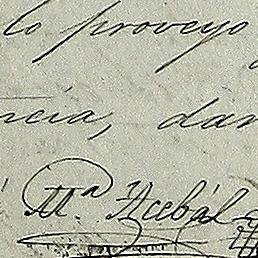 lo proveyo
ncia, dan
Mª Acebál